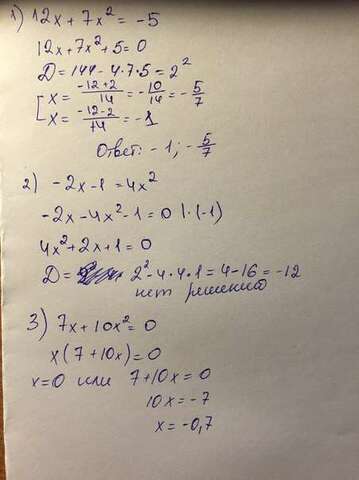 1) 12x + 7x² = -5
12x + 7x² + 5 = 0
D = 144 - 4·7·5 = 2²
[ x = (-12+2)/14 = -10/14 = -5/7
[ x = (-12-2)/14 = -1
Ответ: -1; -5/7
2) -2x - 1 = 4x²
-2x - 4x² - 1 = 0 | ·(-1)
4x² + 2x + 1 = 0
D = 2² - 4·4·1 = 4 - 16 = -12
нет решений
3) 7x + 10x² = 0
x(7 + 10x) = 0
x = 0 или 7 + 10x = 0
10x = -7
x = -0,7